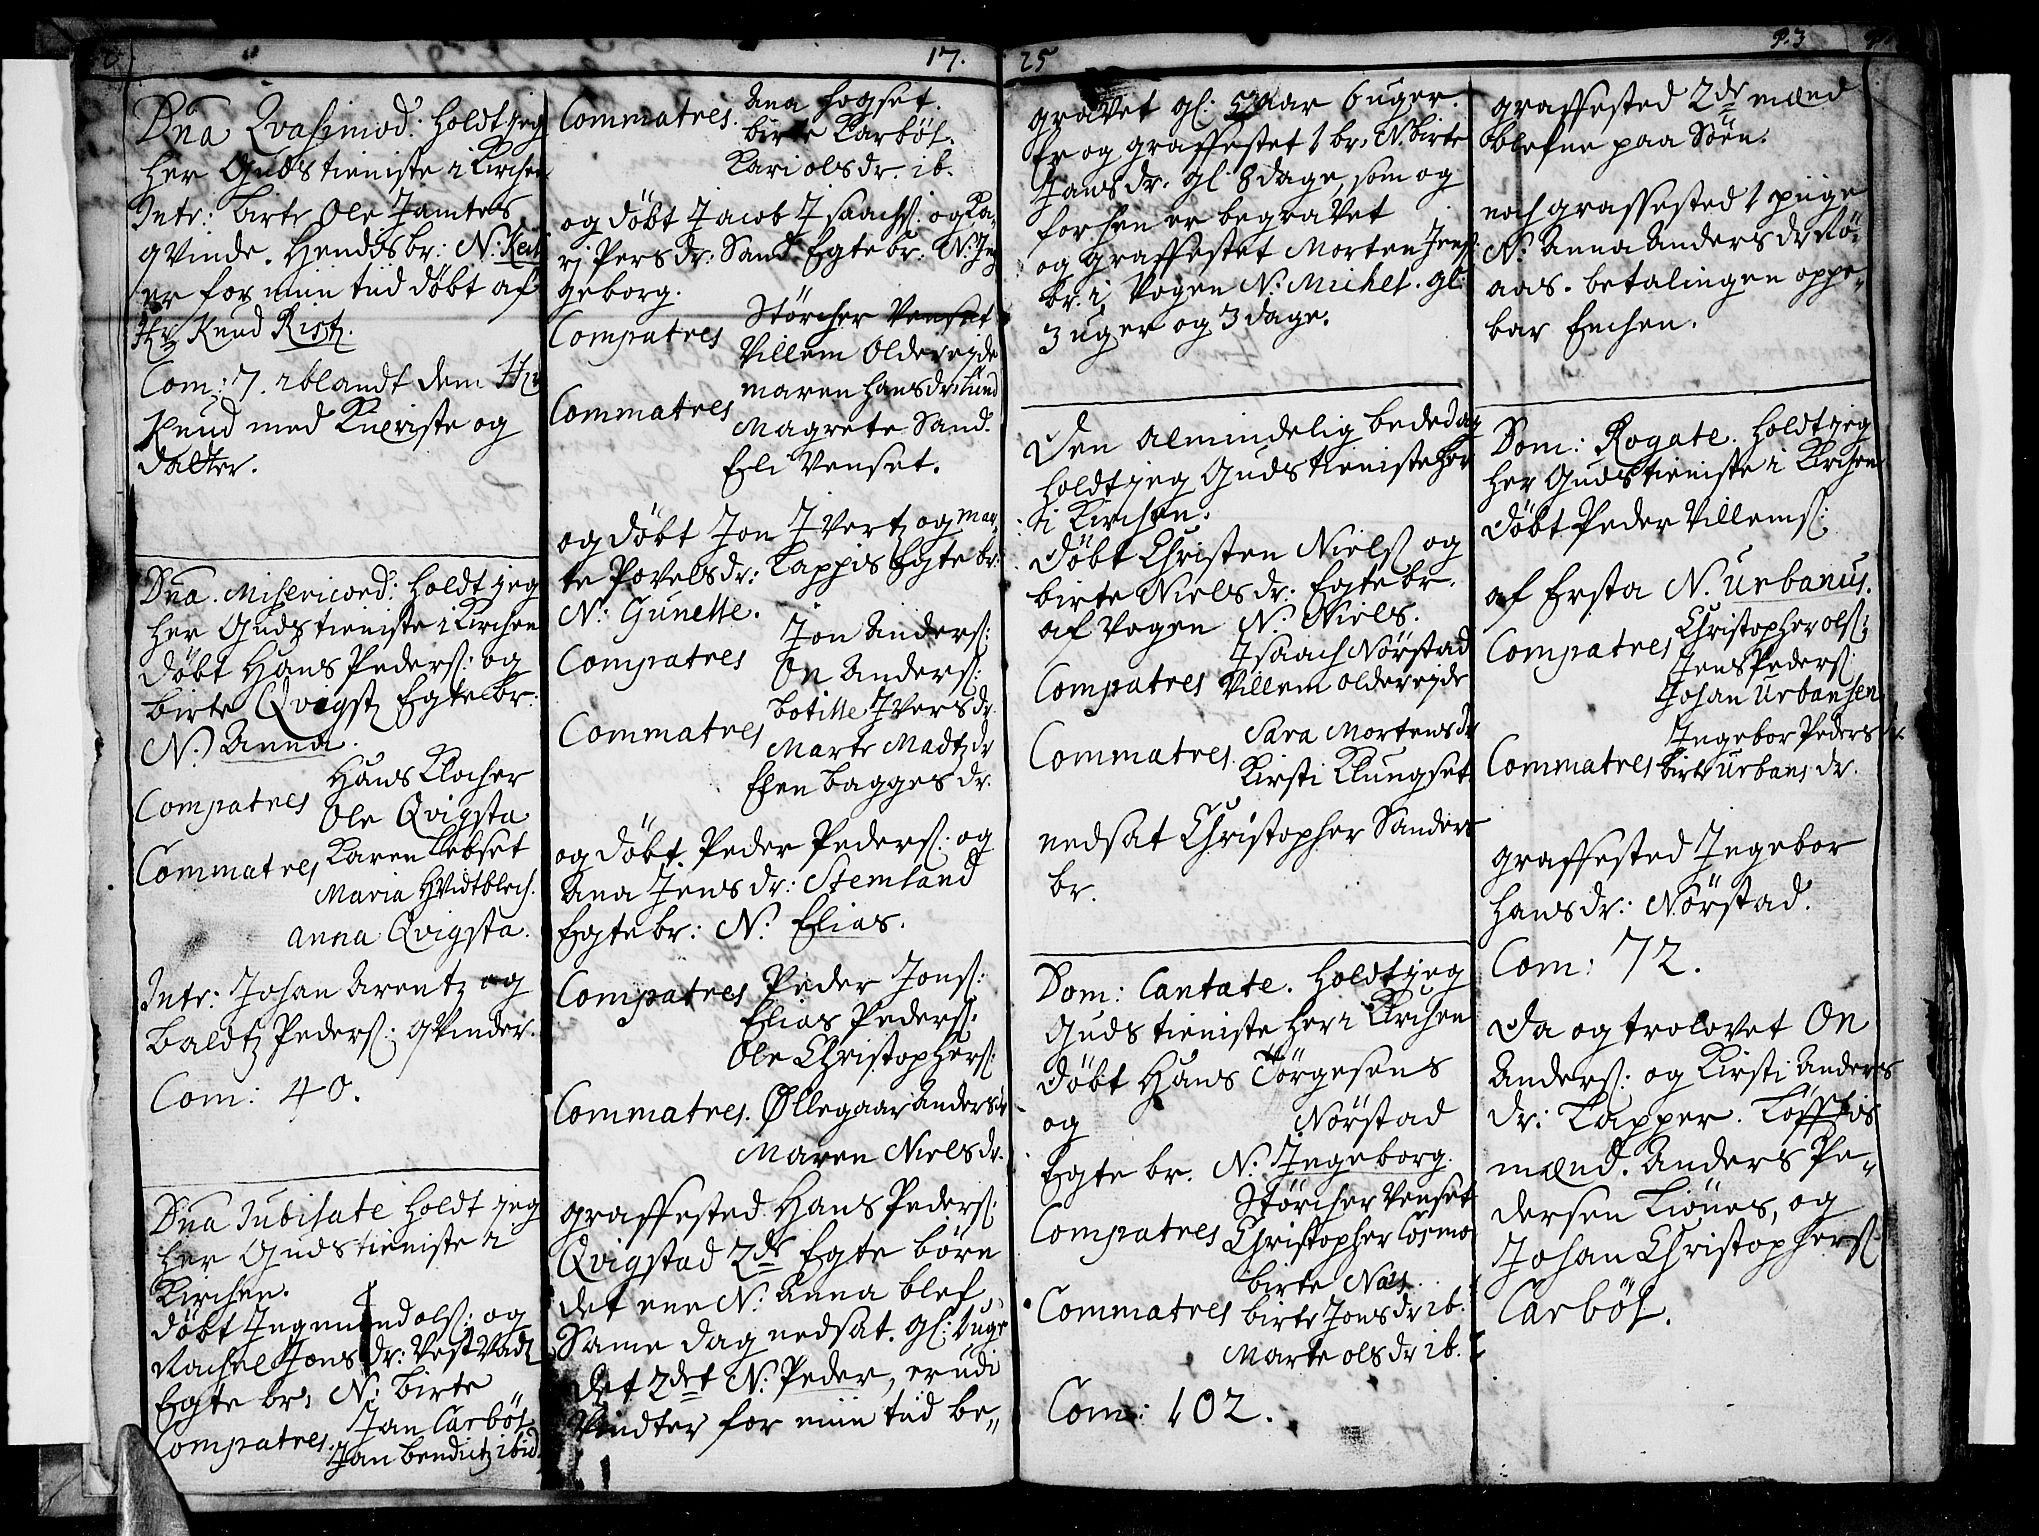 17.
Dna Qvasimod: holdt jeg
her Guds tieniste i Kirchen
Intr: birte Ole Jamtes
qvinde. Hendis br: N:
er for min tiid døbt af
Hr Knud Rist.
Com: 7. iblandt dem Hr
Knud med Kieriste og
datter.
Dna. Misericord: holdt jeg
her Guds tieniste i Kirchen
døbt Hans Peders: og
birte Qvigst Egte br:
N: Anna.
Compatres
Hans Klocher
Ole Qvigsta
Commatres
Karen Lebset
Maria Hvidtblech.
anna Qvigsta.
Intr: Johan Arentz og
Baldtz Peders: qvinder.
Com: 40.
Dna Jubilate holdt jeg
her Guds tieniste i
Kirchen.
døbt Ingmund ols: og
Rachel Jons dr: Vestvadt
Egte br: N: birte
Compatres.
Jan Carbøl
Jan bendictz ibid.
Commatres.
Ana Fogset.
birte Karbøl.
Kari olsdr. ib.
og døbt Jacob Isaachs: og Ka-
ri Pers dr: Sand Egte br: N: In-
geborg.
Compatres
Størcher Venset
Villem Oldereide
Commatres
maren hansdr lund
Magrete Sand.
Eli Venset.
og døbt Jon Ivertz og Mar-
te Povelsdr: Lappis Egte br:
N: Gunelle.
Compatres
Jon Anders:
On Anders:
Commatres
botille Iversdr.
Marte Madtz dr
Elen bagges dr.
og døbt Peder Peders: og
Ana Jens dr: Stemland
Egte br: N: Elias.
Compatres
Peder Jons:
Elias Peders:
Ole Christophers:
Commatres.
Øllegaar Anders dr
Maren Niels dr.
graffested Hans Peders:
Qvigstad 2de Egte børn
det ene N: Anna blef
Same dag nedsat. gl: 1 uge
det 2det N: Peder, er udi
Vindter for min tid be-
25
93
gravet gl: aar 6 uger.
er og graffestet 1 br: N. birte
Jansdr. gl. 8 dage, som og
forhen er begravet
og graffestet Morten Jens:
br: i Vogen N: Michel. gl:
3 uger og 3 dage.
Den Almindelig bededag
holdt jeg Guds tieniste her
i Kirchen.
døbt Christen Niels og
birte Nielsdr: Egte br.
af Vogen N: Niels.
Compatres
Isaach Nørstad
Villem oldereide
Commatres.
Sara Mortens dr
Kirsti Klungset
nedsat Christopher Sanders
br.
Dom: Cantate. holdt jeg
Guds tieniste her i Kirchen
døbt Hans Jørgesens
og Nørstad
Egte br. N: Ingeborg.
Compatres
Størcher Venset
Christopher Cosmo
Commatres
birte Næs.
birte Jonsdr ib.
Marte olsdr ib.
Com: 102.
graffested 2de mænd
blefne paa Søen.
noch graffested 1 piige
N: Anna Anders dr Rø-
aas. betalingen oppe-
bar Enchen.
Dom: Rogate. holdt jeg
her Guds tieniste i Kirchen
døbt Peder Villems:
af Ersta N: Urbanus.
Compatres
Christopher ols:
Jens Peders:
Johan Urbansen
Commatres
Ingebor Peders dr.
birte Urbans dr.
graffested Ingebor
Hansdr: Nørstad.
Com: 72.
Da og trolovet On
Anders: og Kirsti Anders
dr: Lapper. Løfftis
mænd. Anders Pe-
dersen Liønes, og
Johan Christophers:
Carbøl.